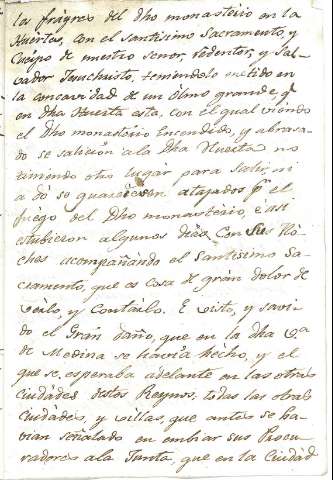 los frayres del dho monasterio en la
Huerta, con el santissimo Sacramento, y
Cuerpo de nuestro señor, redentor, y Sal-
vador Jesuchristo, teniendolo metido en
la concavidad de un olmo grande q̃
en dha Huerta esta, con el qual viendo
el dho monasterio Encendido, y abrasa-
do se salieron a la dha Huerta no
teniendo otro lugar para salir, ni
a dó se guareciesen atajados pr el
fuego del dho monasterio, é asi
estubieron algunos dias con sus No-
ches acompañando el Santissimo Sa-
cramento, que es cosa de grán dolor de
verlo, y Contarlo. E visto, y savi-
do el Gran daño, que en la dha Va
de Medina se havia hecho, y el
que se, esperaba adelante en las otras
Ciudades destos Reynos, todas las otras
Ciudades, y villas, que antes se ha-
vian señalado en embiar sus Procu-
radores a la Junta, que en la Ciudad